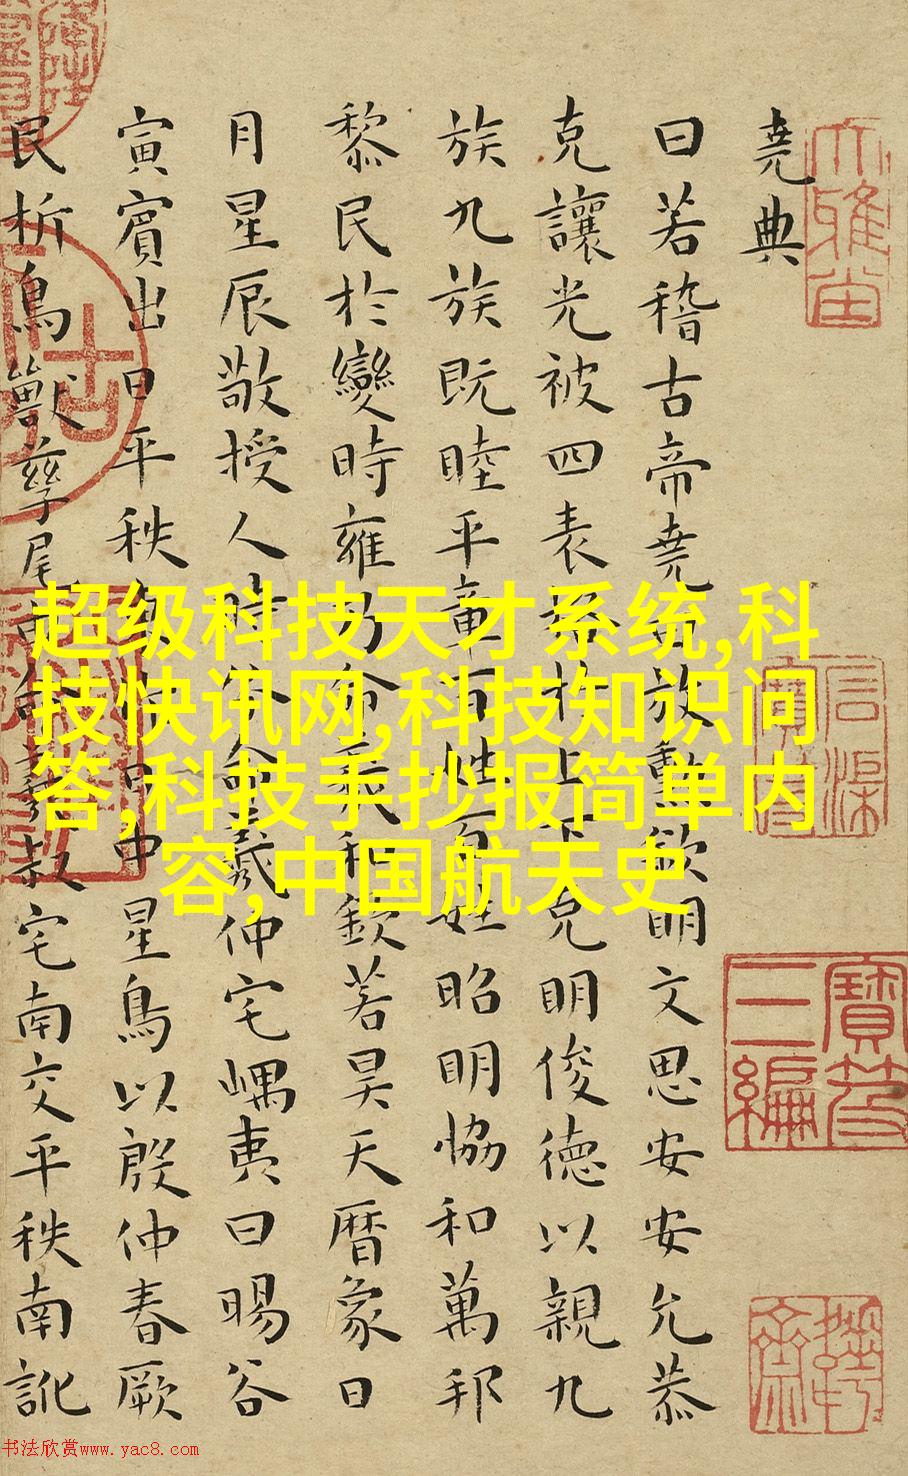 堯典
曰若稽古帝堯曰放勳欽明文思安安允恭
克讓光被四表格於上下克明俊德以親九
族九族既睦平章百姓百姓昭明協和萬邦
黎民於變時雍乃命羲和欽若昊天曆象日
月星辰敬授人時分命羲仲宅嵎夷曰暘谷
寅賓出日平秩東作日中星鳥以殷仲春厥
民析鳥獸孳尾申命羲叔宅南交平秩南訛
超级科技天才系统,科
技快讯网,科技知识问
答,科技手抄报简单内
容,中国航天史
寶笈
三編
书法欣赏www.yac8.com